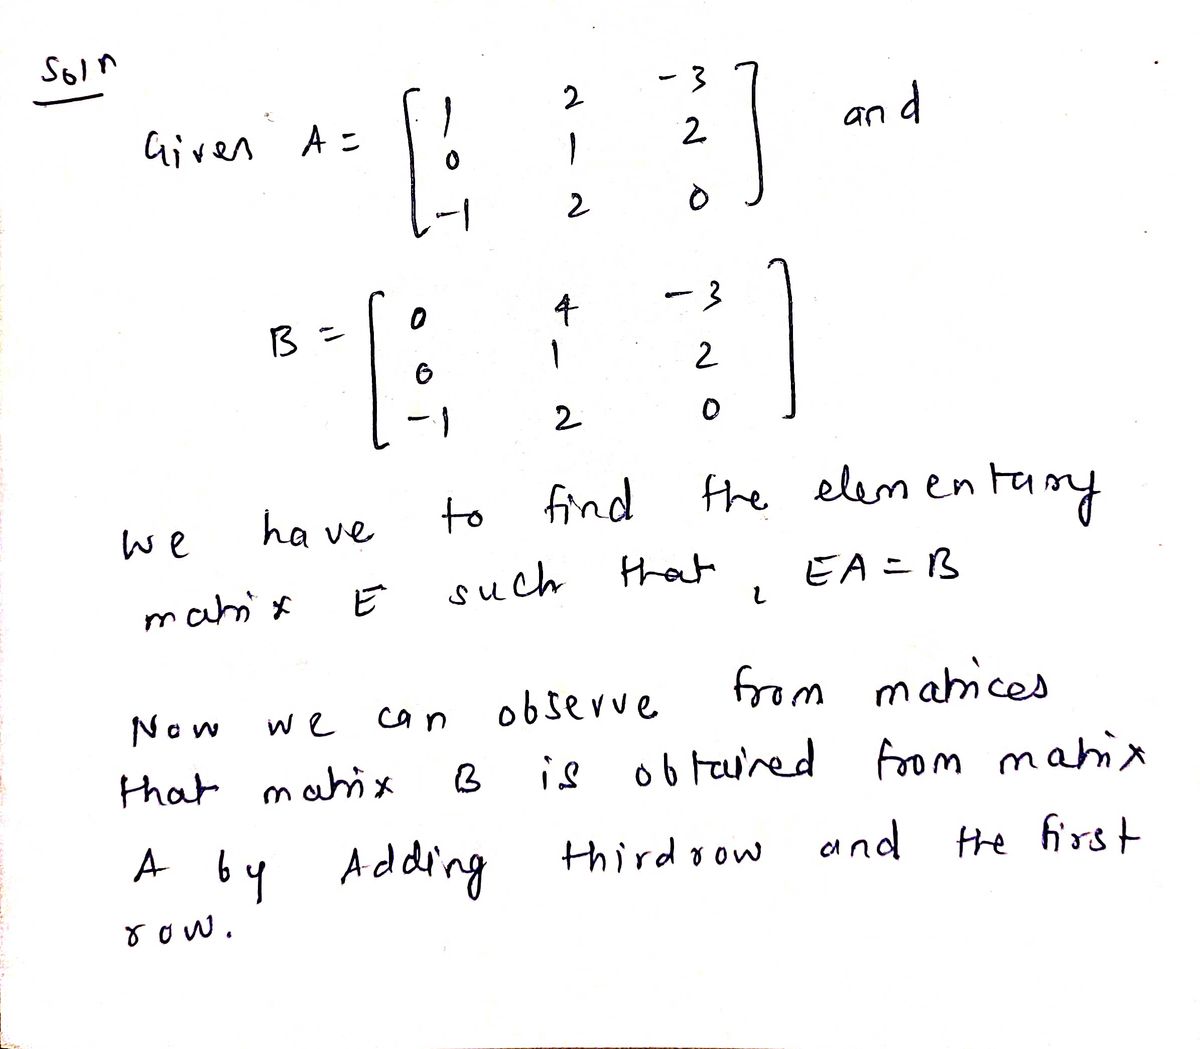 Soln
Given A = [ 1 2 -3
0 1 2
-1 2 0 ] and
B = [ 0 4 -3
0 1 2
-1 2 0 ]
we have to find the elementary
matrix E such that, EA = B
Now we can observe from matrices
that matrix B is obtained from matrix
A by Adding third row and the first
row.